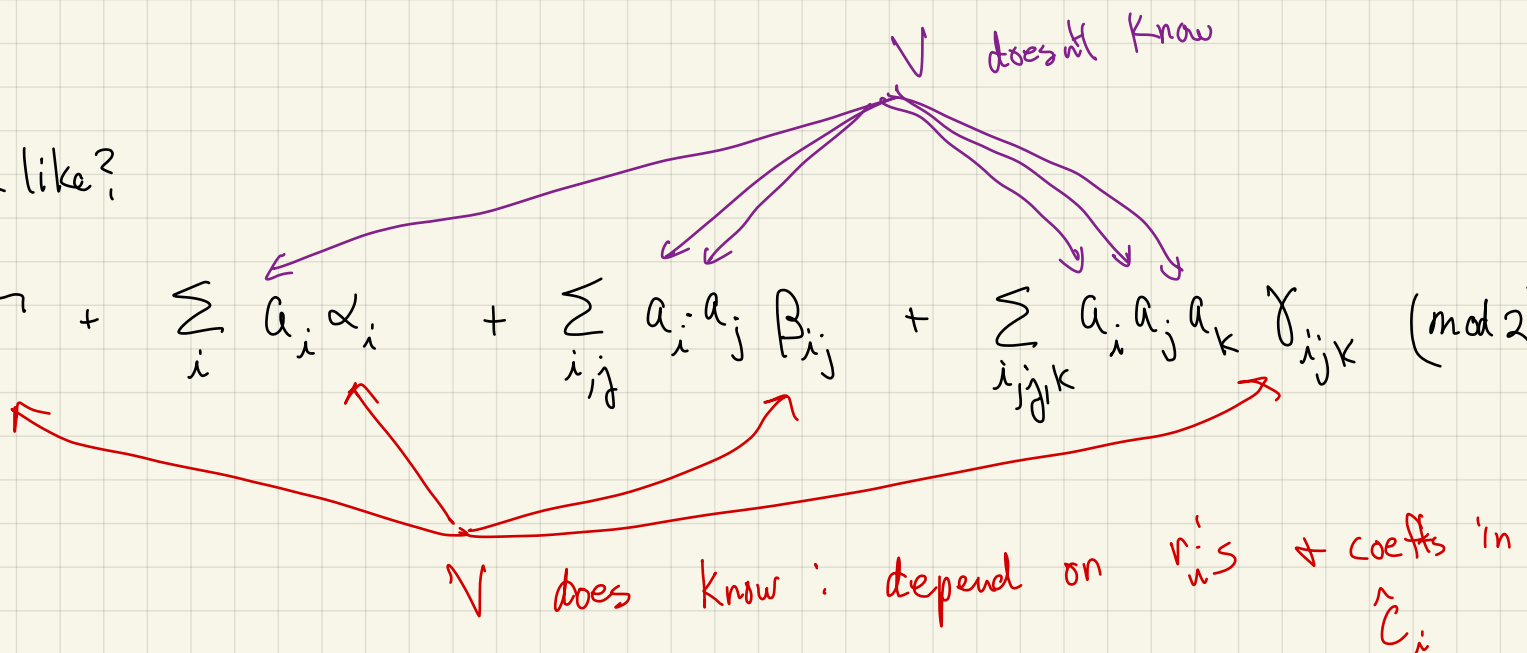 V doesn't know
like?
+ Σ_i a_i α_i + Σ_{i,j} a_i a_j β_{ij} + Σ_{i,j,k} a_i a_j a_k γ_{ijk} (mod 2
V does know : depend on r_i's + coeffs in
Ĉ_i